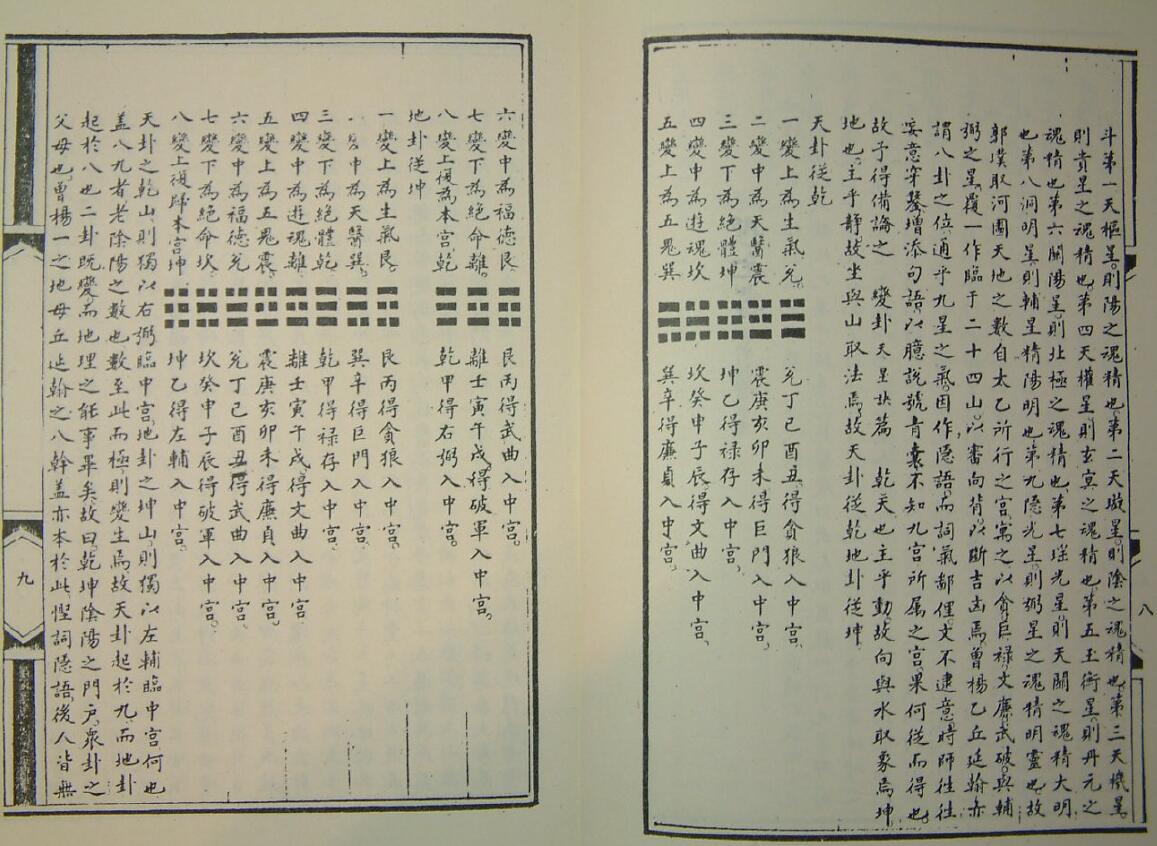 斗第一天樞星。則陽之魂精也。第二天璇星。則陰之魂精也。第三天機星。
則貴星之魂精也。第四天權星。則玄冥之魂精也。第五玉衡星。則丹元之
魂精也。第六闓陽星。則北極之魂精也。第七瑤光星。則天關之魂精大明
也。第八洞明星。則輔星精陽明也。第九隱光星。則弼星之魂精明靈也。故
郭璞取河圖天地之數。自太乙所行之宮。寓之以貪巨祿文廉武破。與輔
弼之星。履一作臨于二十四山。以審向背。以斷吉凶焉。曾楊乙丘延翰亦
謂八卦之位。通乎九星之氣。因作隱語。而詞氣鄙俚。文不逮意。時師往往
妄意穿鑿。增添句語。以臆說號青囊。不知九宮所屬之宮。果何從而得也。
故予得備論之　變卦天星訣篇　乾天也。主乎動。故向與水取象焉。坤
地也。主乎靜。故坐與山取法焉。故天卦從乾。地卦從坤。
天卦從乾
一變上為生氣兌　兌丁巳酉丑。得貪狼入中宮。
二變中為天醫震　震庚亥卯未得巨門入中宮。
三變下為絕體坤　坤乙得祿存入中宮。
四變中為遊魂坎　坎癸申子辰。得文曲入中宮。
五變上為五鬼巽　巽辛得廉貞入中宮。
八
六變中為福德艮　艮丙得武曲入中宮。
七變下為絕命離。　離壬寅午戌。得破軍入中宮。
八變上復為本宮乾　乾甲得右弼入中宮。
地卦從坤
一變上為生氣艮。　艮丙得貪狼入中宮。
變中為天醫巽。　巽辛得巨門入中宮。
三變下為絕體乾　乾甲得祿存入中宮。
四變中為遊魂離　離壬寅午戌。得文曲入中宮
五變上為五鬼震。　震庚亥卯未。得廉貞入中宮。
六變中為福德兌　兌丁巳酉丑。得武曲入中宮。
七變下為絕命坎。　坎癸申子辰。得破軍入中宮。
八變上復歸本宮坤　坤乙得左輔入中宮。
天卦之乾山。則獨以右弼臨中宮。地卦之坤山。則獨以左輔臨中宮何也
蓋八九者老陰陽之數也。數至此而極。則變生焉。故天卦起於九。而地卦
起於八也。二卦既變。而地理之能事畢矣。故曰。乾坤陰陽之門戶。眾卦之
父母也。曾楊一之地母丘延翰之八幹。蓋亦本於此。慳詞隱語。後人皆無
九